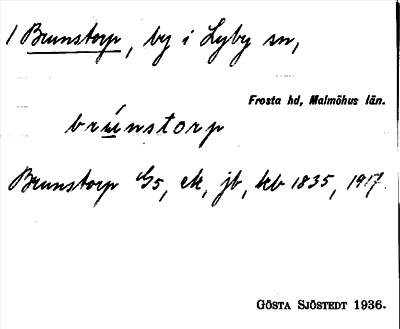 1 Brunstorp, by i Lyby sn,
Frosta hd, Malmöhus län.
brúnstorp
Brunstorp 1/5, ek, jb, kb 1835, 1917.
GÖSTA SJÖSTEDT 1936.